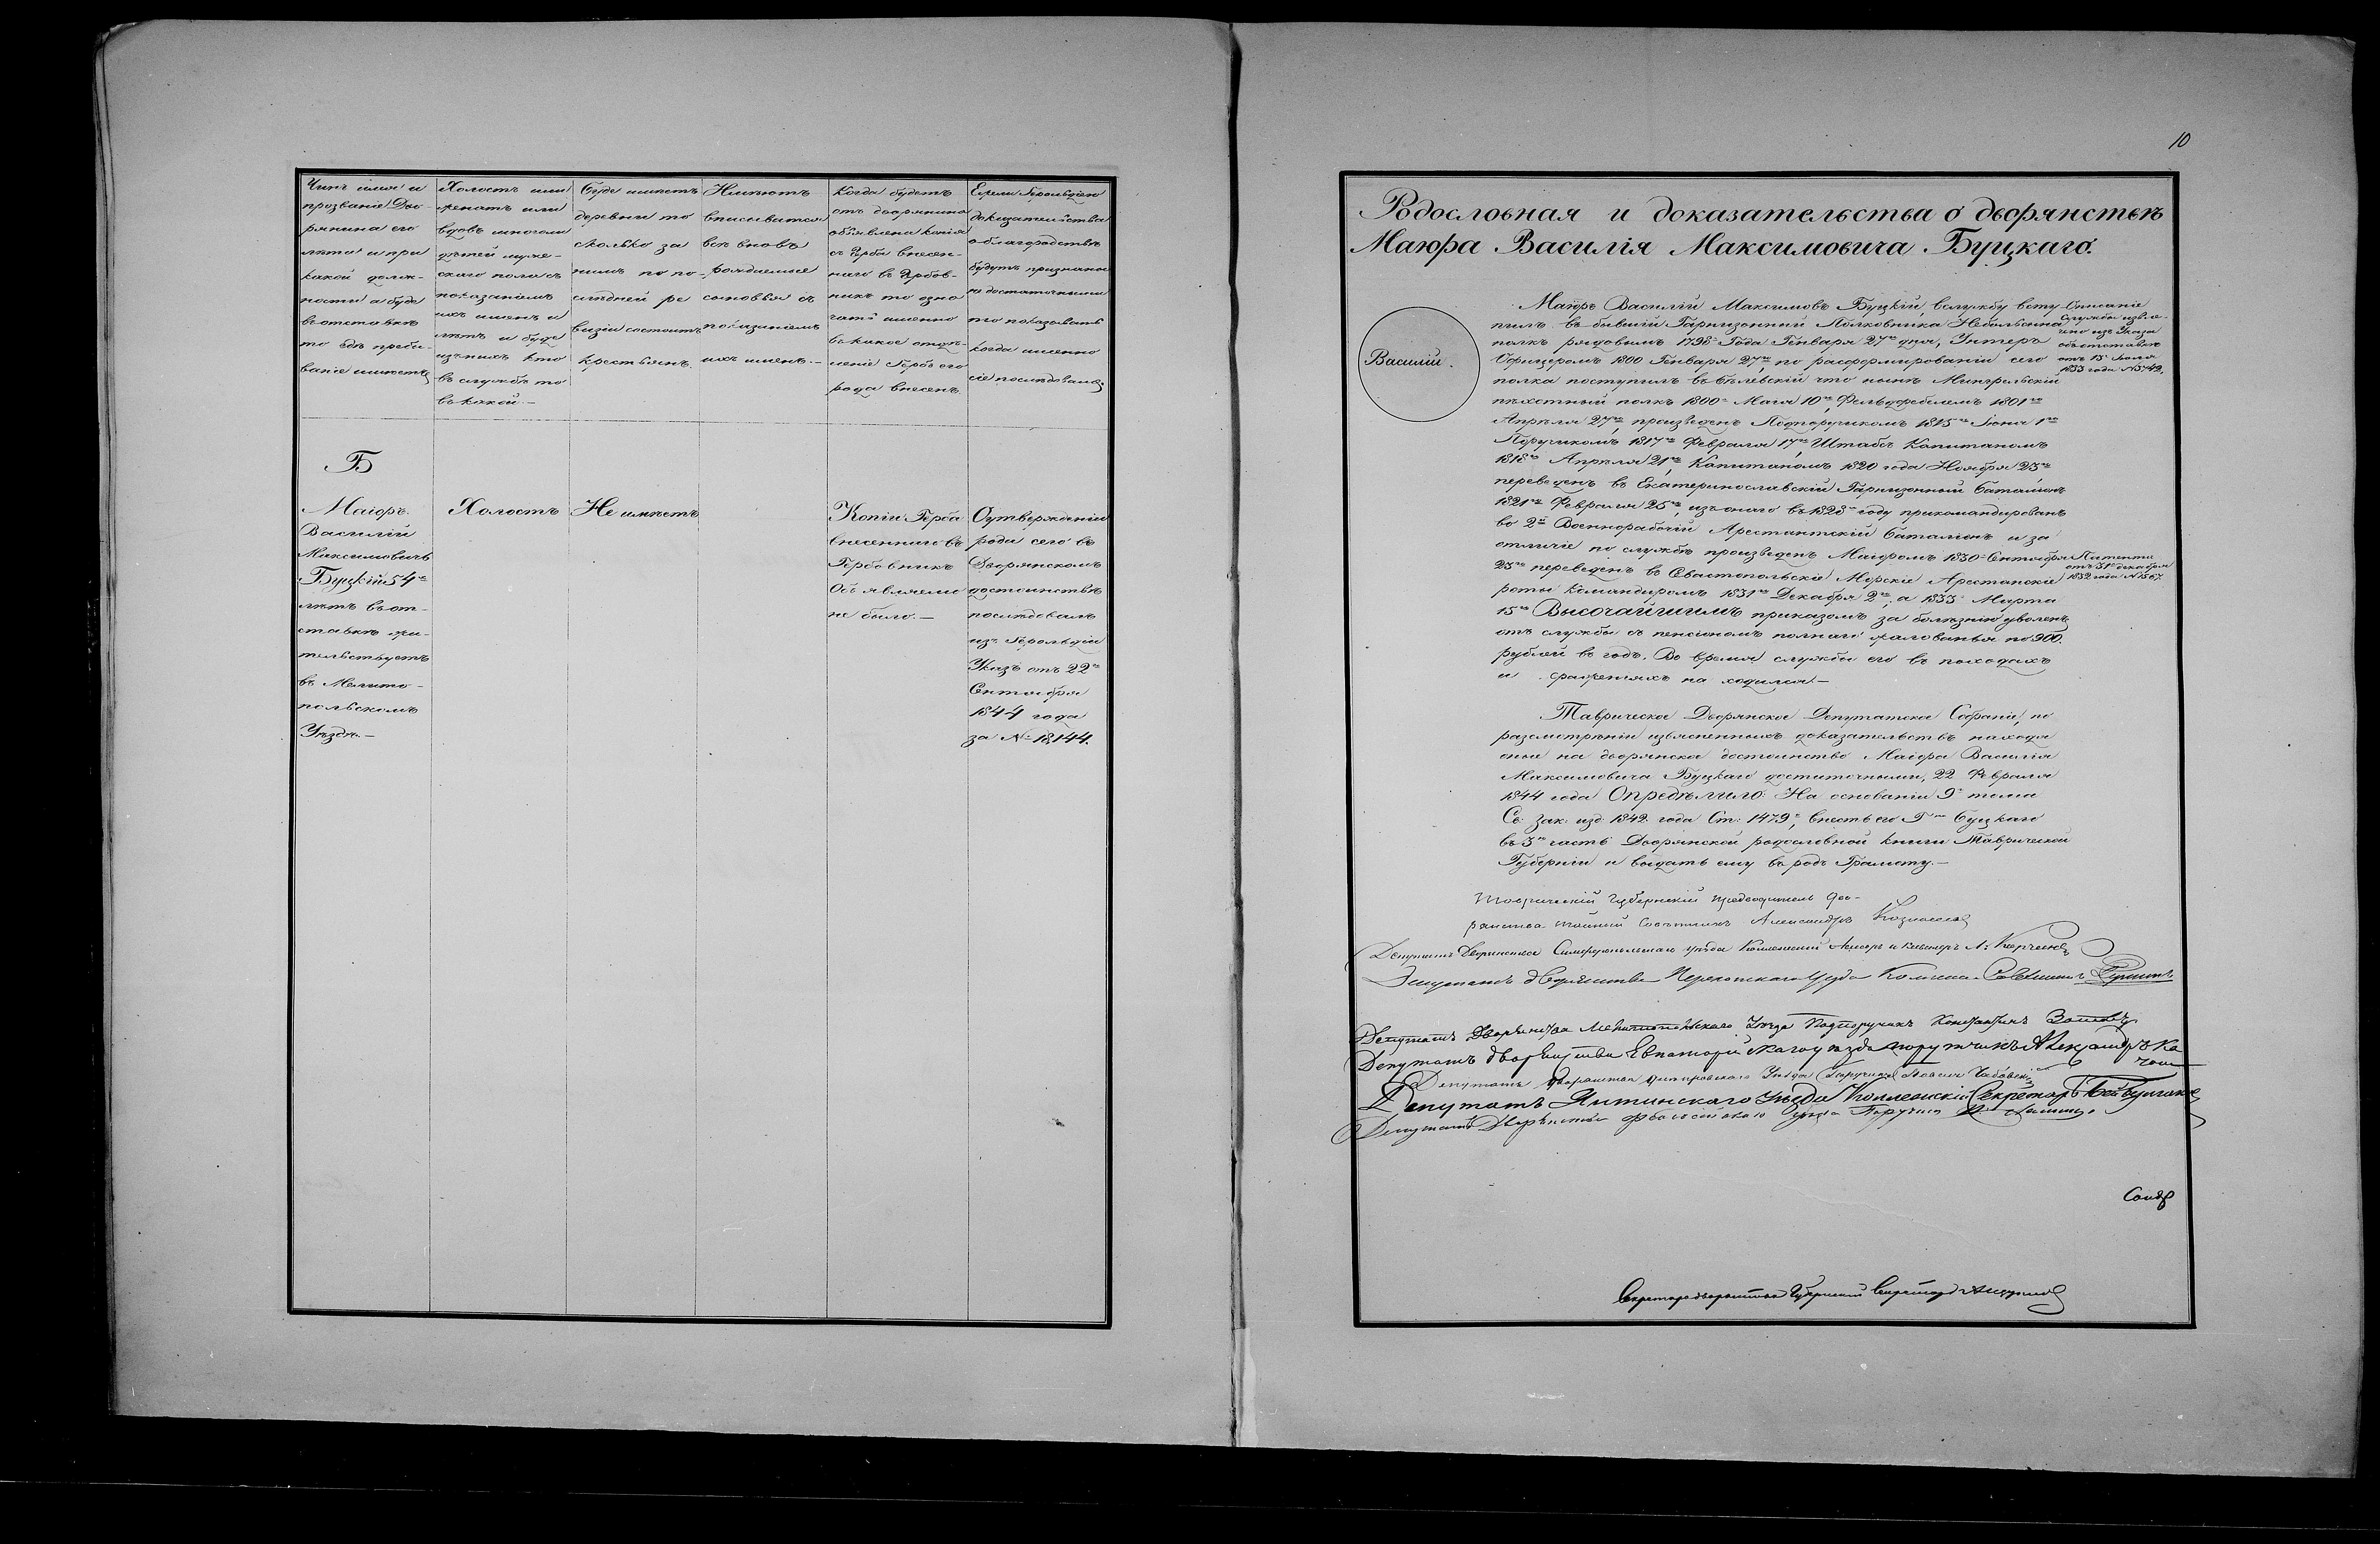 Чинъ имя и
прозваніе Дво-
рянина его
лѣта и при
какой долж-
ности а буде
въ отставкѣ
то гдѣ пребы-
ваніе имѣетъ
Холостъ или
женатъ или
вдовъ многоли
дѣтей муже-
скаго пола съ
показаніемъ
ихъ именъ и
лѣтъ и буде
изъ нихъ кто
въ службѣ то
въ какой.—
Буде имѣетъ
деревни то
сколько за
нимъ по по-
слѣдней ре
визіи состоитъ
крестьянъ.
вписыватся
всѣ вновь
рождаемые
сыновья съ
показаніемъ
ихъ именъ.—
Когда будетъ
отъ дворянина
объявлена копія
съ Герба внесен-
наго въ Гербов-
никъ то озна
чать именно
въ какое отдѣ-
леніе Гербъ его
рода внесенъ.
Ежели Герольдіею
доказательства
о благородствѣ
будутъ признаны
не достаточными
то показывать
когда именно
сіе послѣдовало
Б
Маіоръ
Василій
Максимовичъ
Буцкій 54ть
лѣтъ въ от-
ставкѣ жи-
тельствуетъ
въ Мелито-
польскомъ
Уѣздѣ.—
Холостъ
Не имѣетъ
Копіи Герба
внесеннаго въ
Гербовникъ
Объявляемо
не было.—
О утвержденіи
рода сего въ
Дворянскомъ
достоинствѣ
послѣдовалъ
изъ Герольдіи
Указъ отъ 22го
Сентября
1844 года
за № 12,144.
10
Родословная и доказательства о дворянствѣ
Маіора Василія Максимовича Буцкаго.
Василій.
Маіоръ Василій Максимовъ Буцкій, въ службу всту
пилъ въ бывшій Гарнизонный Полковника Небольсина
полкъ рядовымъ 1798 Года Генваря 27го дня, Унтеръ
Офицеромъ 1800 Генваря 27го, по расформированіи сего
полка поступилъ въ Бѣлевскій что нынѣ Мингрельскій
пѣхотный полкъ 1800 Маія 10го, Фельдфебелемъ 1801го
Апрѣля 27го, произведенъ Подпоручикомъ 1815го Іюня 1го
Поручикомъ 1817го Февраля 17го, Штабсъ Капитаномъ
1818го Апрѣля 21го, Капитаномъ 1820 года Ноября 23го
переведенъ въ Екатеринославскій Гарнизонный баталіонъ
1821го Февраля 25го, изъ онаго въ 1828 году прикомандированъ
во 2й Военнорабочій Арестантскій баталіонъ и за
отличіе по службѣ произведенъ Маіоромъ 1830 Сентября
25го переведенъ въ Севастопольскіе Морскіе Арестанскіе
роты командиромъ 1831го Декабря 2го, а 1833 Марта
15го Высочайшимъ приказомъ за болѣзнію уволенъ
отъ службы съ пенсіономъ полнаго жалованья по 900.
рублей въ годъ. Во время службы его въ походахъ
и сраженіяхъ не ходился.—
Описаніе
службы извле-
чено изъ Указа
объ отставкѣ
отъ 15 Іюля
1833 года №5742.
Патента
отъ 31го декабря
1832 года №1567
Таврическое Дворянское Депутатское Собраніе, по
разсмотрѣніи изъясненныхъ доказательствъ находя
оные на дворянское достоинство Маіора Василія
Максимовича Буцкаго достаточными, 22 Февраля
1844 года Опредѣлило: На основаніи 9 тома
Св: Зак: изд: 1842 года Ст: 1479, внесть его Гна Буцкаго
въ 3ю часть Дворянской родословной книги Таврической
Губерніи и выдать ему въ родъ Грамоту.—
Таврическій Губернскій Предводитель Дво-
рянства Тайный Совѣтникъ Александръ Казначеев
Депутатъ Дворянства Симферопольскаго уѣзда
Депутатъ Дворянства Перекопскаго Уѣзда
Депутатъ Дворянства Мелитопольскаго Уѣзда Подпоручикъ Константинъ
Депутатъ дворянства Евпаторійскагоуѣзда поручикъ Александръ Ка
Депутатъ дворянства Днѣпровскаго Уѣзда Поручикъ
Депутатъ Ялтинскаго Уѣзда Коллежскій Секретарь
Депутатъ Дворянства Феодосійскаго уѣзда Поручикъ
Секретарь дворянства Губернскій Секретарь